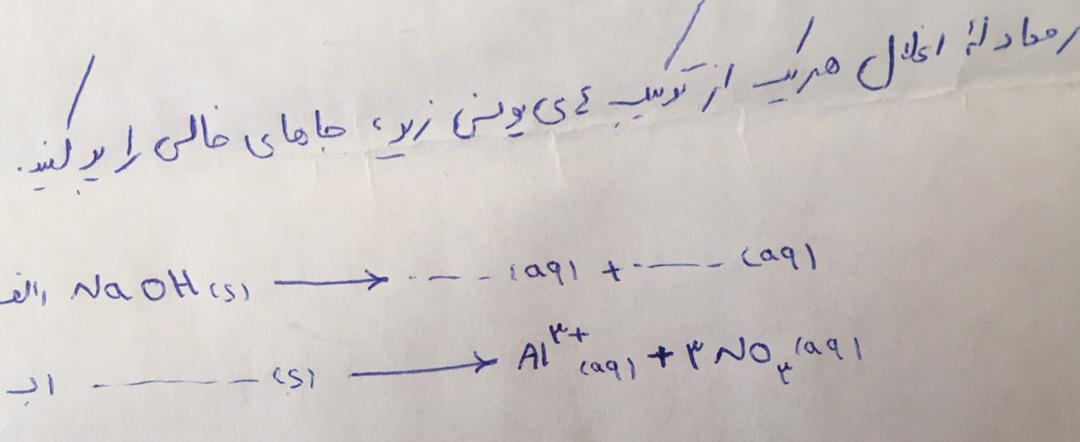 ر معادلهٔ انحلال هریک از ترکیب های یونی زیر، جاهای خالی را پر کنید.
الف) NaOH(s) ⟶ ......(aq) + ......(aq)
ب) ............(s) ⟶ Al³⁺(aq) + ۳NO₃(aq)